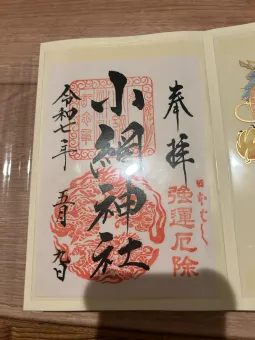 奉拝
強運厄除
小網神社
令和七年
五月九日